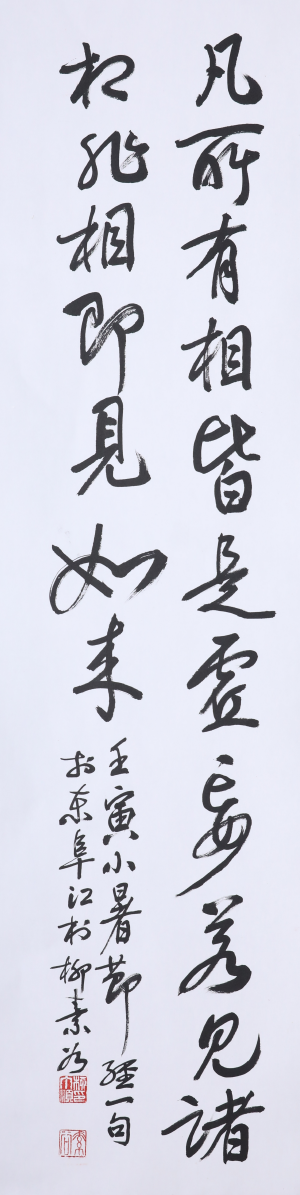 凡所有相皆是虚妄若见諸
相非相即見如来
壬寅小暑節經一句
於東阜江村柳素为